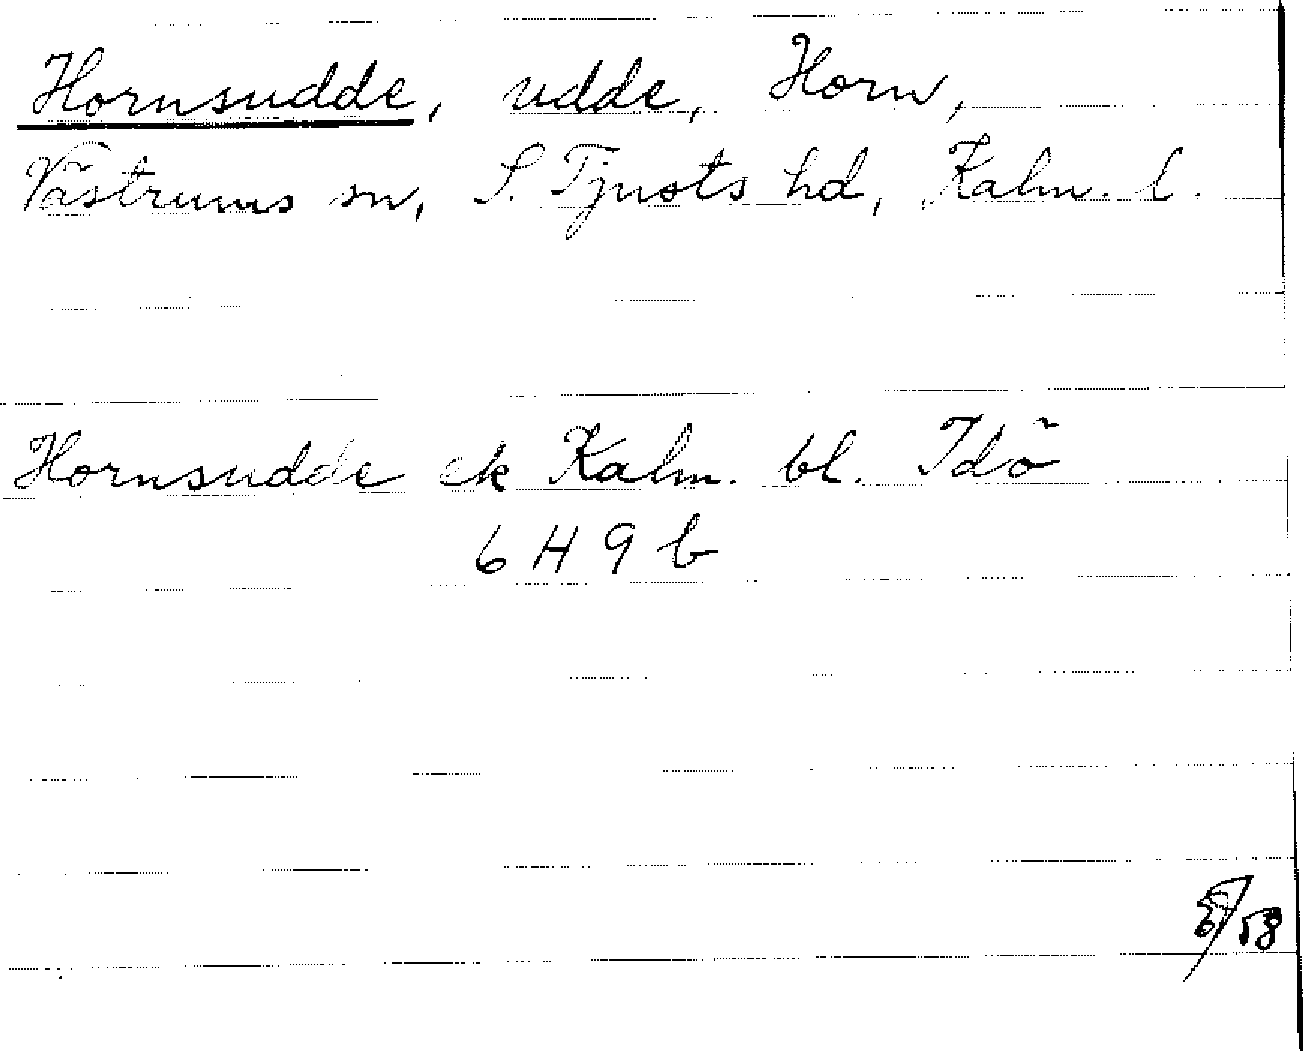 Hornsudde, udde, Horn,
Västrums sn, S. Tjusts hd, Kalm. l.
Hornsudde ek Kalm. bl. Idö
6 H 9 b